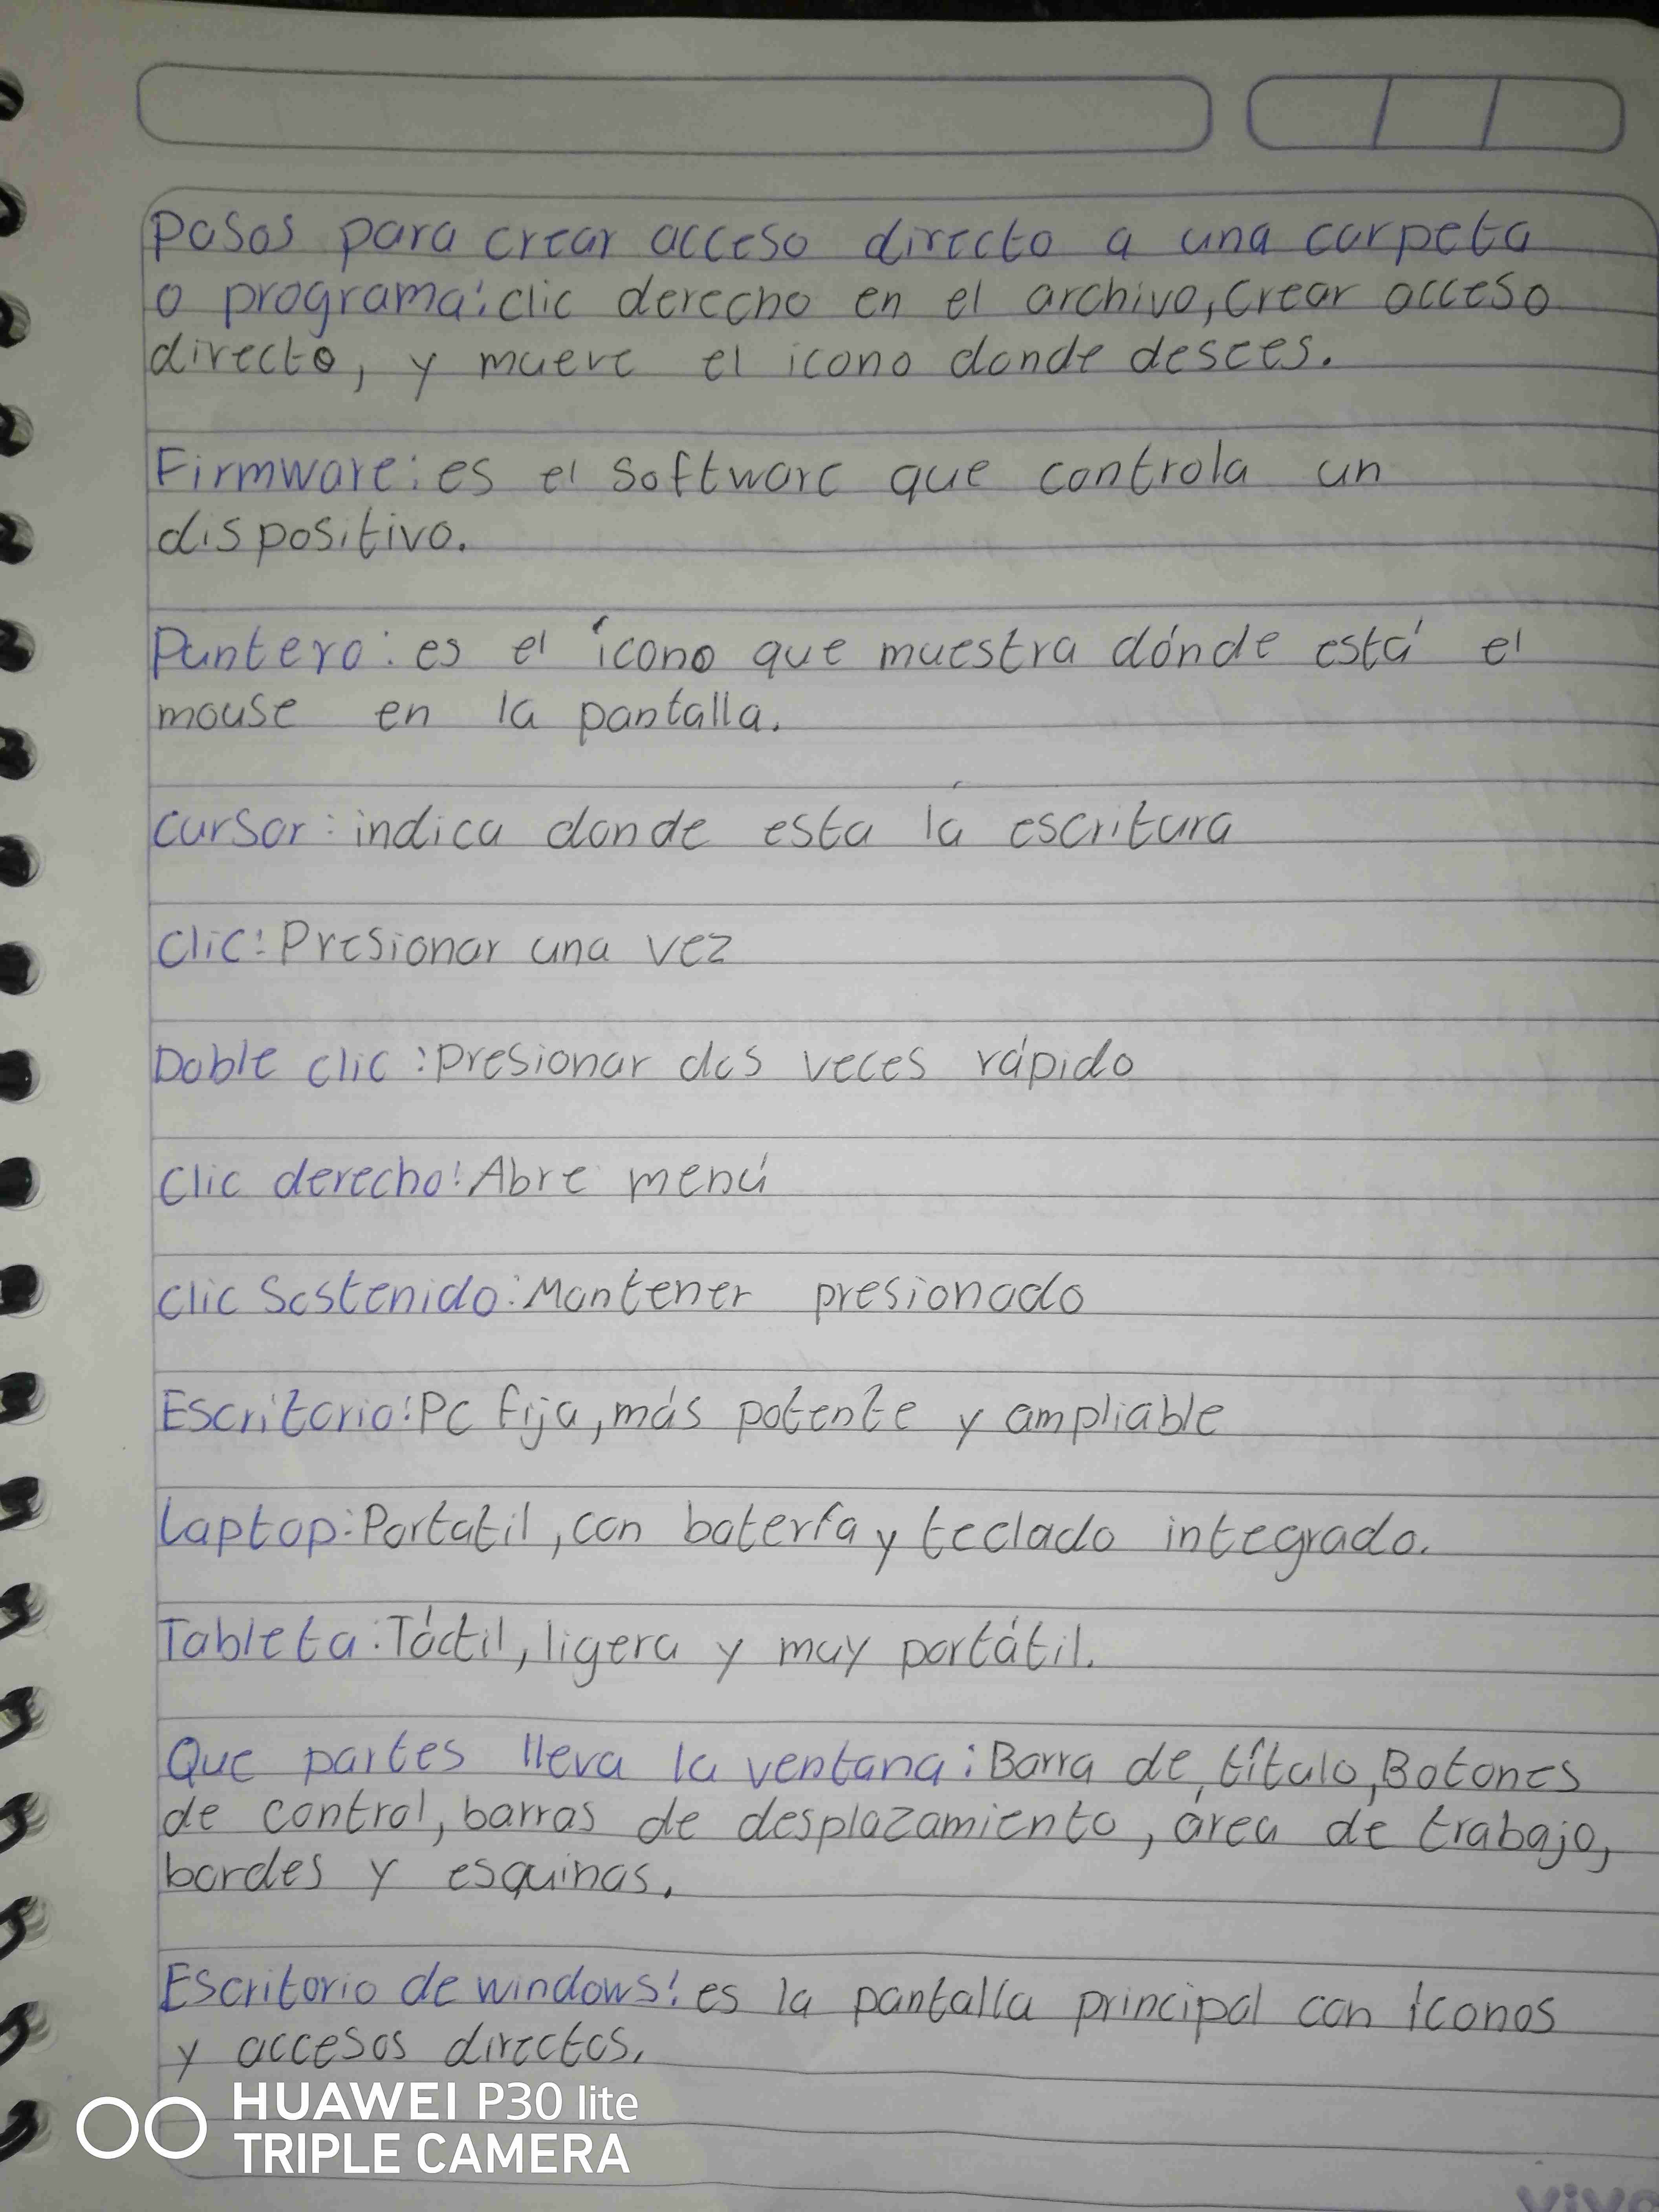 Pasos para crear acceso directo a una carpeta
o programa: clic derecho en el archivo, Crear acceso
directo, y mueve el icono donde desees.
Firmware: es el Software que controla un
dispositivo.
Puntero: es el ícono que muestra dónde está el
mouse en la pantalla.
cursor: indica donde esta lá escritura
Clic: Presionar una vez
Doble clic: Presionar dos veces rápido
Clic derecho: Abre menú
clic Sostenido: Mantener presionado
Escritorio: Pc fija, más potente y ampliable
Laptop: Portatil, con batería y teclado integrado.
Tableta: Táctil, ligera y muy portátil.
Que partes lleva la ventana: Barra de título, Botones
de control, barras de desplazamiento, área de trabajo,
bordes y esquinas.
Escritorio de windows: es la pantalla principal con íconos
y accesos directos.
HUAWEI P30 lite
TRIPLE CAMERA